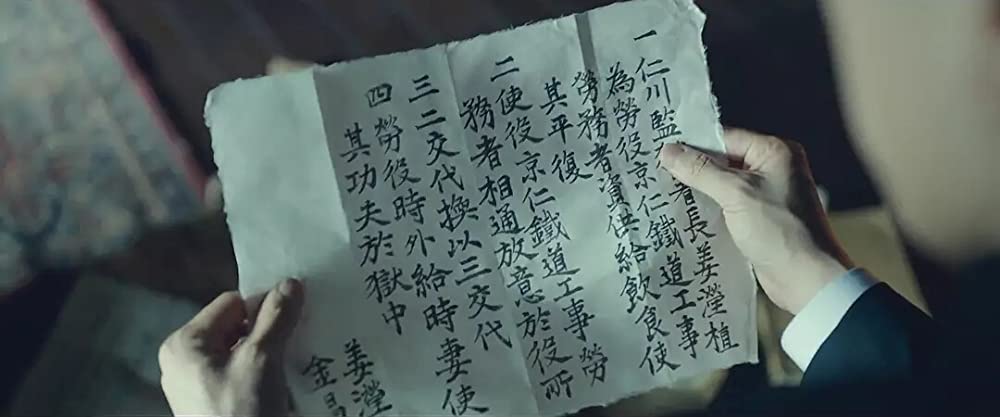 一仁川監署長姜瀅植
為勞役京仁鐵道工事
勞務者資供給飲食使
其平復
二使役京仁鐵道工事勞
務者相通放意於役所
三二交代換以三交代
四勞役時外給時妻使
其功夫於獄中
姜瀅
金昌